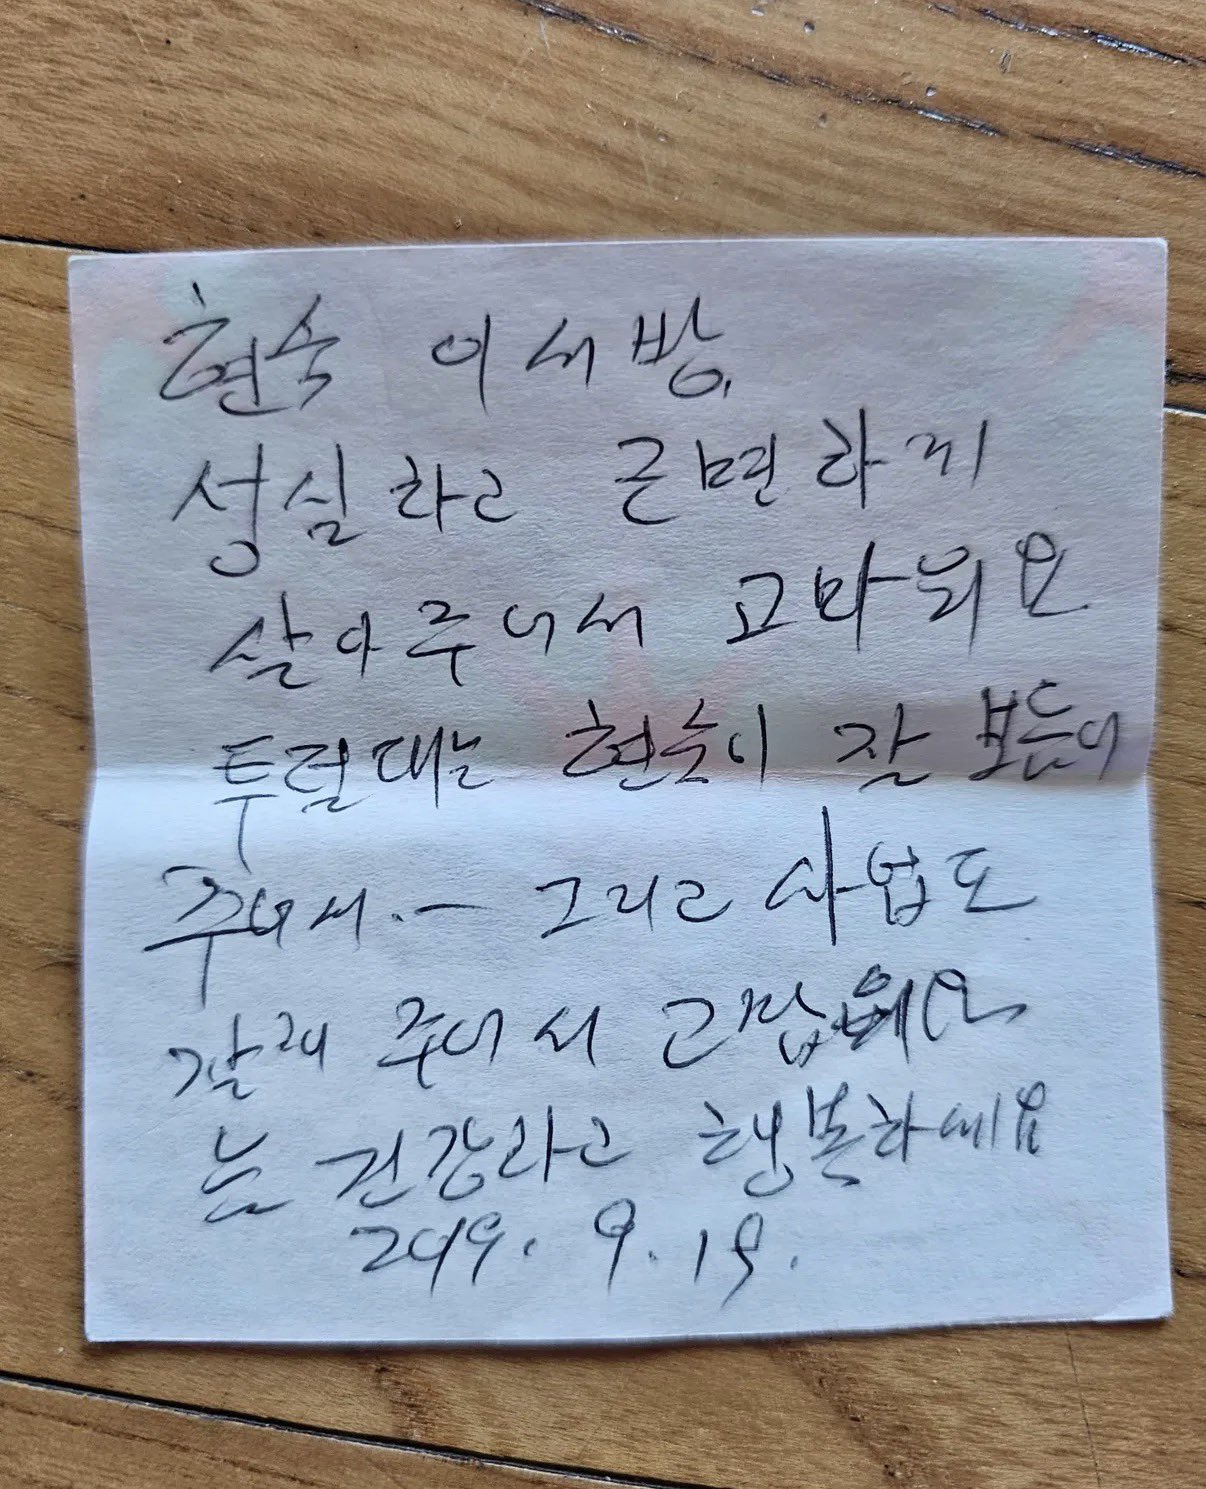 현숙 이서방,
성실하고 근면하게
살아주어서 고마워요
투덜대는 현숙이 잘 보듬어
주어서.— 그리고 사업도
잘해 주어서 고맙워요
늘 건강하고 행복하세요
2019. 9. 19.